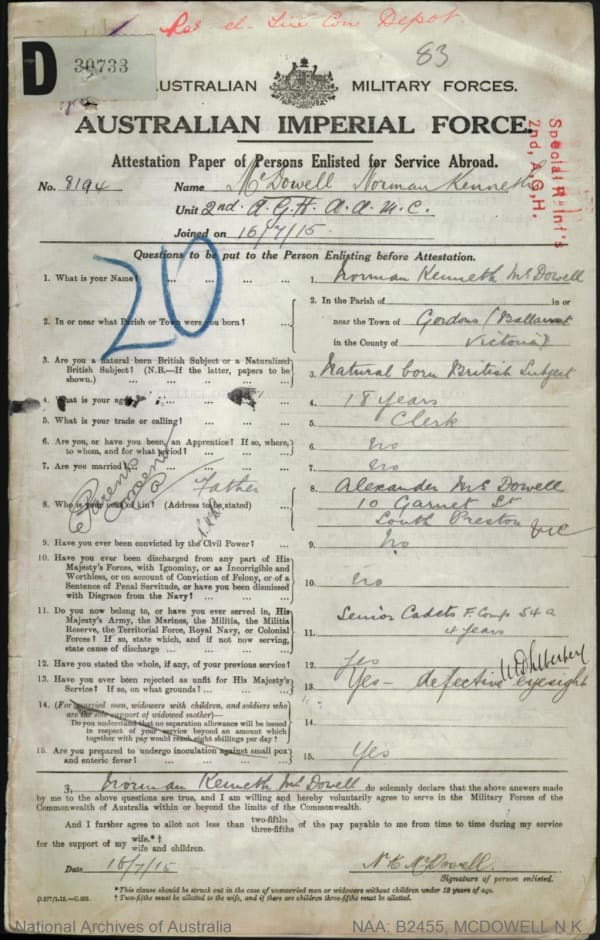 Ras el-Tin Con Depot
83
D 30733
AUSTRALIAN MILITARY FORCES.
AUSTRALIAN IMPERIAL FORCE.
Special R'int's
2nd, A.G.H.
Attestation Paper of Persons Enlisted for Service Abroad.
No. 8194 Name McDowell Norman Kenneth
Unit 2nd. A.G.H. A.A.M.C.
Joined on 16/7/15
Questions to be put to the Person Enlisting before Attestation.
20
1. What is your Name? ... ... ... ... 1. Norman Kenneth McDowell
2. In or near what Parish or Town were you born? ... 2. In the Parish of in or
near the Town of Gordons (Ballarat
in the County of Victoria)
3. Are you a natural born British Subject or a Naturalized
British Subject? (N.B.—If the latter, papers to be
shown.) ... ... ... ... ... 3. Natural born British Subject
4. What is your age? ... ... ... ... 4. 18 years
5. What is your trade or calling? ... ... ... 5. Clerk
6. Are you, or have you been, an Apprentice? If so, where,
to whom, and for what period? ... ... ... 6. No
7. Are you married? ... ... ... 7. No
Parents
Consent
Father
8. Who is your next of kin? (Address to be stated) ... 8. Alexander McDowell
10 Garnet St
South Preston Vic
9. Have you ever been convicted by the Civil Power? ... 9. No
10. Have you ever been discharged from any part of His
Majesty's Forces, with Ignominy, or as Incorrigible and
Worthless, or on account of Conviction of Felony, or of a
Sentence of Penal Servitude, or have you been dismissed
with Disgrace from the Navy? ... ... ... 10. No
11. Do you now belong to, or have you ever served in, His
Majesty's Army, the Marines, the Militia, the Militia
Reserve, the Territorial Force, Royal Navy, or Colonial
Forces? If so, state which, and if not now serving,
state cause of discharge ... ... ... 11. Senior Cadets F. Comp 54a
4 years
12. Have you stated the whole, if any, of your previous service? 12. Yes
13. Have you ever been rejected as unfit for His Majesty's
Service? If so, on what grounds? ... ... 13. Yes - defective eyesight
14. (For married men, widowers with children, and soldiers who
are the sole support of widowed mother—
Do you understand that no separation allowance will be issued
in respect of your service beyond an amount which
together with pay would reach eight shillings per day? 14.
15. Are you prepared to undergo inoculation against small pox
and enteric fever? ... ... ... ... 15. Yes
I, Norman Kenneth McDowell do solemnly declare that the above answers made
by me to the above questions are true, and I am willing and hereby voluntarily agree to serve in the Military Forces of the
Commonwealth of Australia within or beyond the limits of the Commonwealth.
And I further agree to allot not less than two-fifths three-fifths of the pay payable to me from time to time during my service
for the support of my wife.*† wife and children.
Date 16/7/15 N.K. McDowell.
Signature of person enlisted.
*This clause should be struck out in the case of unmarried men or widowers without children under 18 years of age.
† Two-fifths must be allotted to the wife, and if there are children three-fifths must be allotted.
National Archives of Australia NAA: B2455, MCDOWELL N K